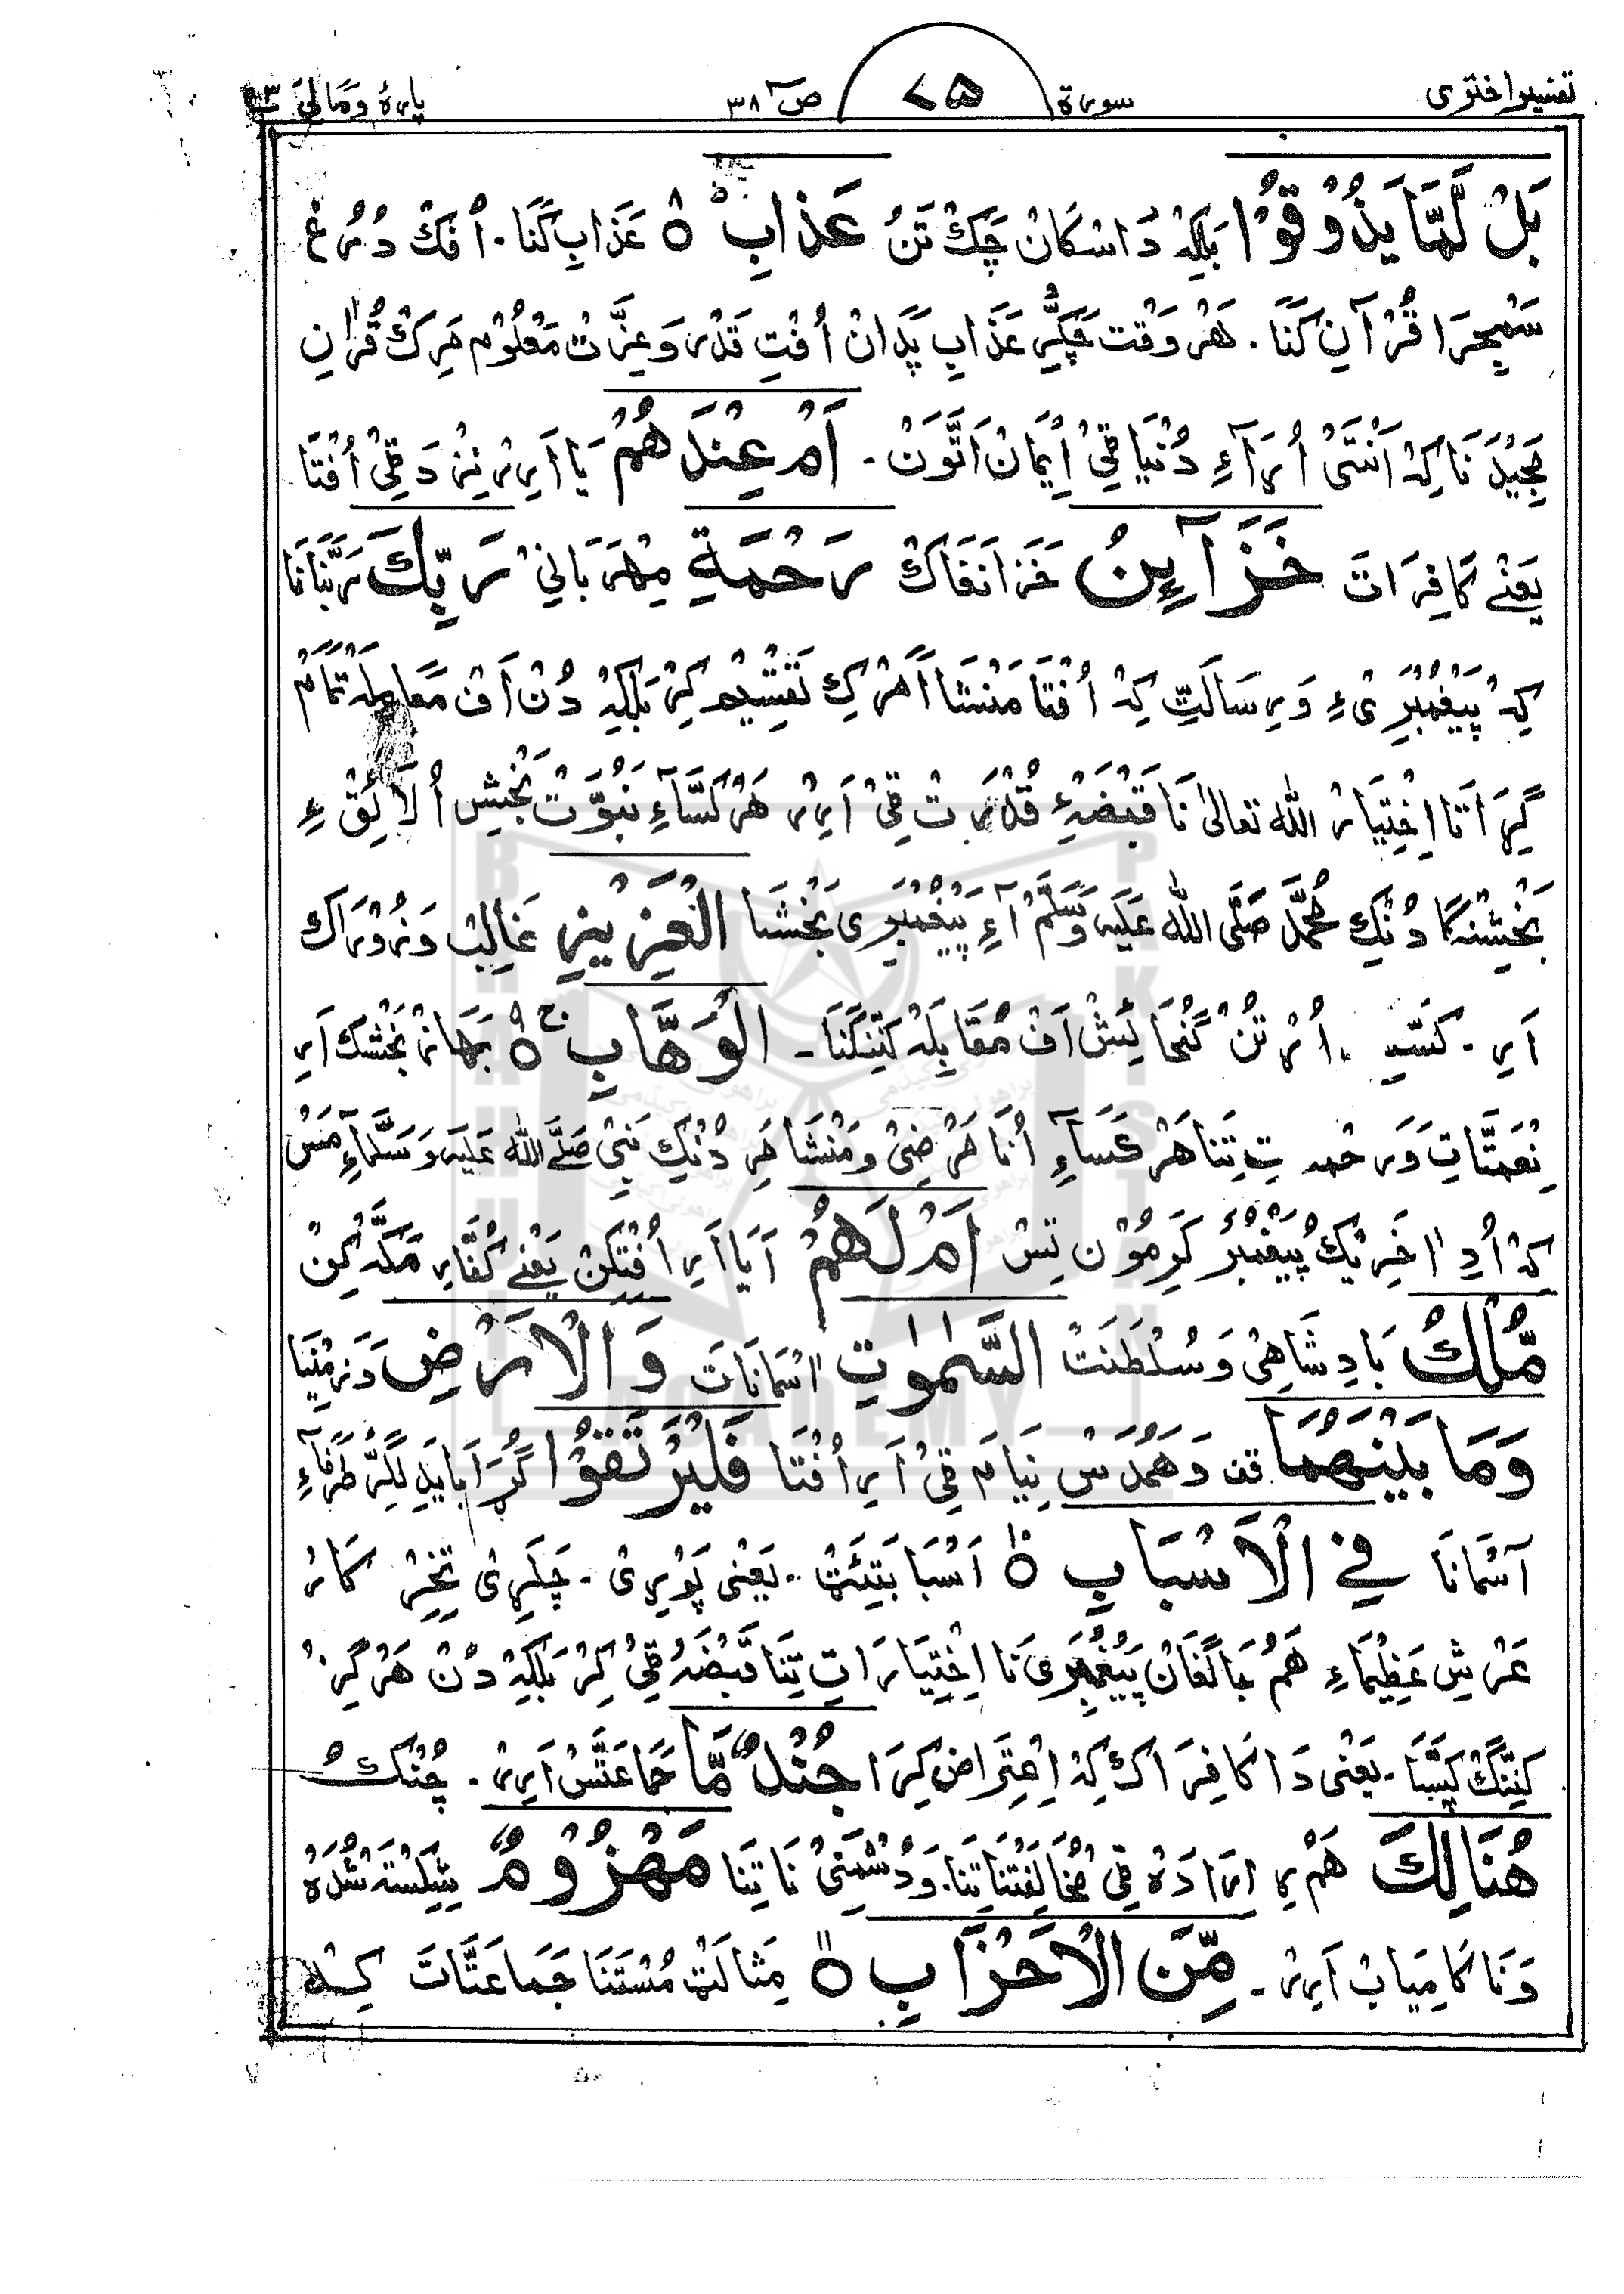 تفسیر اختری سورة ۷۵ صٓ ۳۸ پارهٔ ومالی ۲۳
بَلْ لَّمَّا يَذُوْقُوْا بَلكِہْ دَاسْكَانْ چَكّ تَنُ عَذَابِ ۸ عَذَابِ كَنَا۔ اُفكْ دُرُغ
سَمْجِرَا قُرْآنِ كَنَا ۔ هَرْوَقْت چَكِّرْ عَذَابِ پَدَانْ اُفْتِ قَدْر وَعِزَّتْ مَعْلُوْم مَرِكْ قُرْانِ
مَجِيْدَ نَا كِہْ اَنْتَىْ اُرَآءِ دُنْيَا قِیْ اِيْمَانْ اَتَّوَنْ ۔ اَمْ عِنْدَهُمْ يَا اَرِرْ نِزْدَ قِیْ اُفْتَا
يَعْنِے كَافِرَاتَ خَزَآىِٕنُ خَزَانَغَاكْ رَحْمَةِ مِهْرَبَانِیْ رَبِّكَ رَبَّنَا نَا
كِہْ پَيْغَمْبَرِیْ ءِ وَرِسَالَتِ كِہْ اُفْتَا مَنْشَا اَمَّرْكِ تَقْسِيْم كِرْ بَلكِہْ دُنْ اَفْ مَعَامِلَہْ تَمَامْ
گِرَاتَا اِخْتِيَارْ اللہ تعالیٰ نَا قَبْضَہْءِ قُدْرَتْ قِیْ اَرِرْ هَرْ كَسَّآءِ نَبُوَّتْ بَخْشِ اُ لَائِقْ ءِ
بَخْشِنْگَا دُنْكِ مُحَمَّد صَلَّى اللہ عَلَيْہ وَسَلَّمْ آءِ پَيْغَمْبَرِی بَخْشَا الْعَزِيْزِ غَالِبْ وَزُوْرَاكْ
اَرِ ۔ كَسَّرْ اُرْتُنْ كُنْحَا لِشْ اَفْ مُقَابِلَہْ كَنِّنْگنَا ۔ الْوَهَّابِ ۹ بَهَازْ بَخْشِك اَرِ
نِعْمَتَاتِ وَرَحْمت تِ تِنَا هَرْ كَسَآءِ اُنَا مَرْضِیْ وَمَنْشَا مَرِ دُنْكِ نَبِیْ صَلَّے اللہ عَلَيْہ وَسَلَّمآءِ مَسْ
كِہْ اُدِ اٰخَرِيْكُ پَيْغَمْبَرْ كَرِمُوْن تِسْ اَمْ لَهُمْ اَيَا اَرِ اُفْتِكِنْ يَعْنِے كُفَّارِ مَكَّہْ كِنْ
مُّلْكُ بَادِشَاهِیْ وَسُلْطَنَتْ السَّمٰوٰتِ اٰسْمَانَاتَ وَالْاَرْضِ وَزَمِيْنَا
وَمَا بَيْنَهُمَا وَهَمُدَسْ نِيَام قِیْ اَرِ اُفْتَا فَلْيَرْتَقُوْا گُرَا بَايَدِ لَگِرْ طَرَفَآءِ
آسْمَانَا فِى الْاَسْبَابِ ۱۰ اَسْبَابَتِئَتْ ۔ يَعْنِی پَوْرِیْ ۔ چَكِرِیْ تَخِرْ كَارْ
عَرْشِ عَظِيْمَاءِ هَمْ جَاگَغَانْ پَيْغَمْبَرِی نَا اِخْتِيَارَاتِ تِنَا قَبْضَہْ قِیْ كِرْ بَلكِہْ دُنْ هَرْگِزْ
كَنِّنْگ كَپَّسَا ۔ يَعْنِی دَا كَافِرَاكْ كِہْ اِعْتِرَاض كِرَا جُنْدٌ مَّا جَمَاعَتَّسْ اَرِرْ ۔ چُنْكُ
هُنَالِكَ هَمْرِ اِرَادَہْ قِیْ مُخَالَفْتَنَا تِنَا وَدُشْمَنِیْ نَا تِنَا مَهْزُوْمٌ شِكَسْتَہ شُدَہ
وَنَا كَامِيَابْ اَرِرْ ۔ مِّنَ الْاَحْزَابِ ۱۱ مَثَالَتْ مُسْتَنَا جَمَاعَتَّاتَ كِہْ